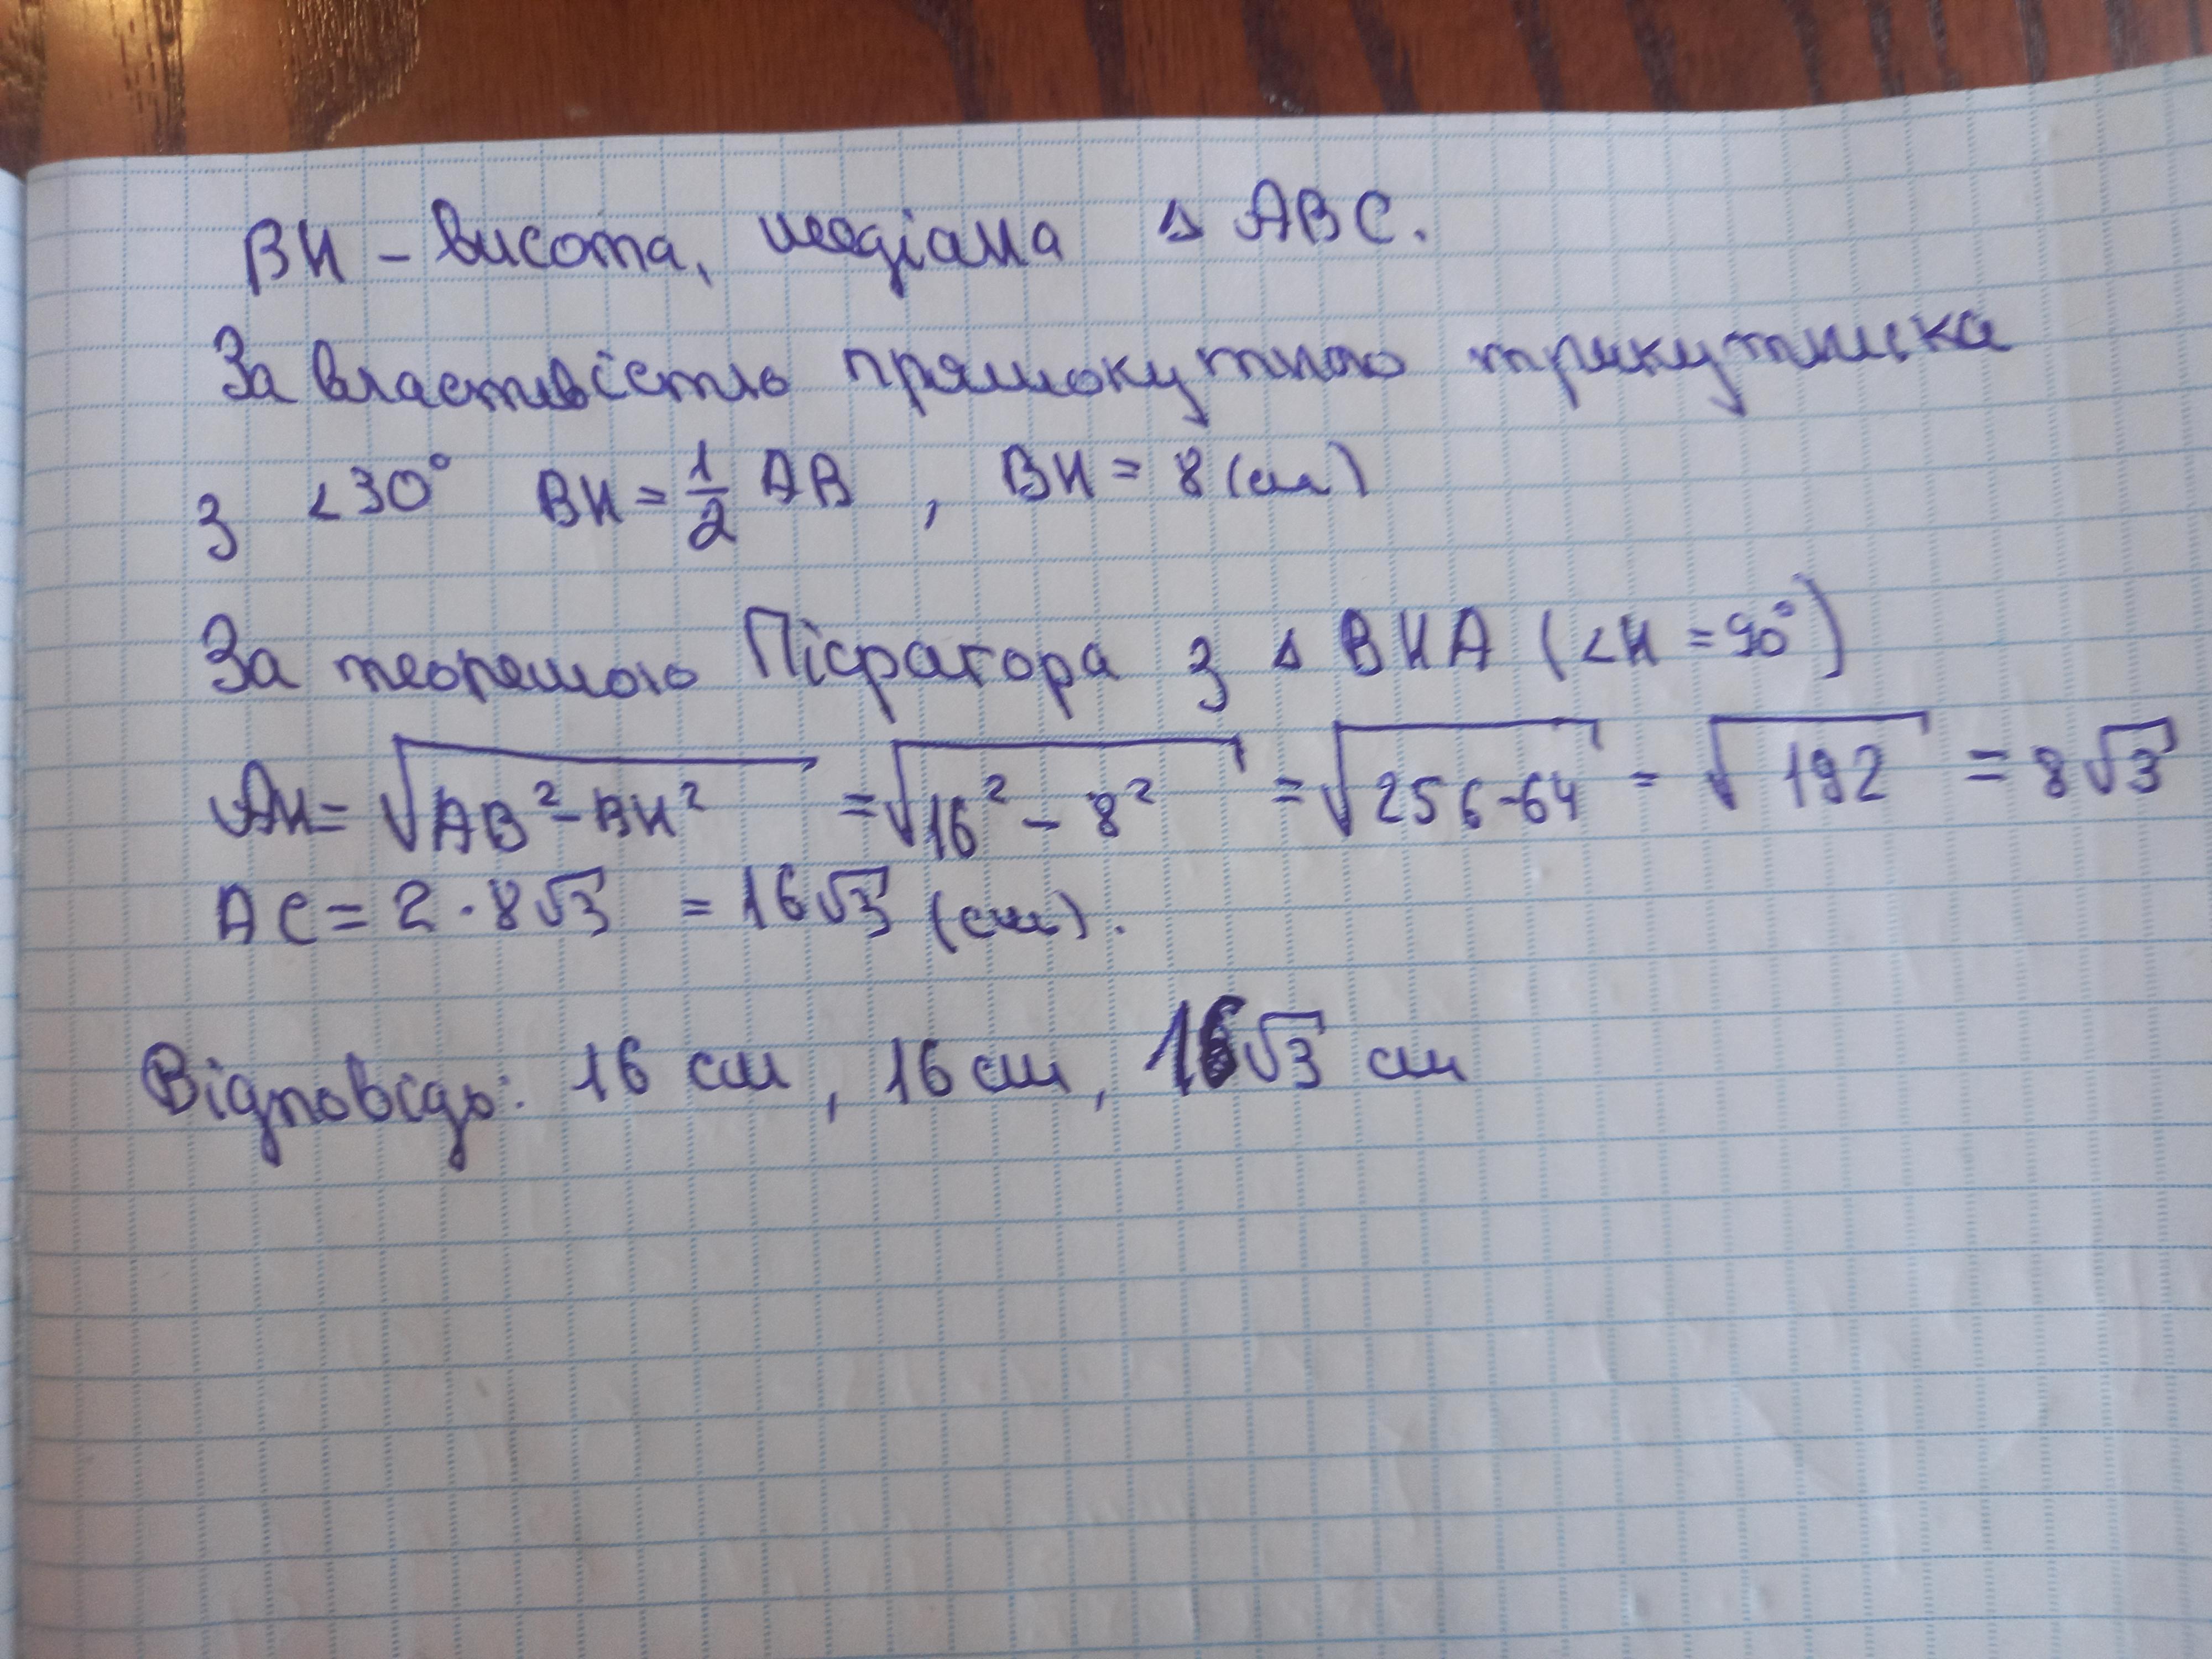 BH - висота, медіана △ ABC.
За властивістю прямокутного трикутника
з <30° BH = 1/2 AB , BH = 8 (см)
За теоремою Піфагора з △ BHA (<H = 90°)
AH = √(AB² - BH²) = √(16² - 8²) = √(256-64) = √192 = 8√3
AC = 2 · 8√3 = 16√3 (см).
Відповідь: 16 см, 16 см, 16√3 см